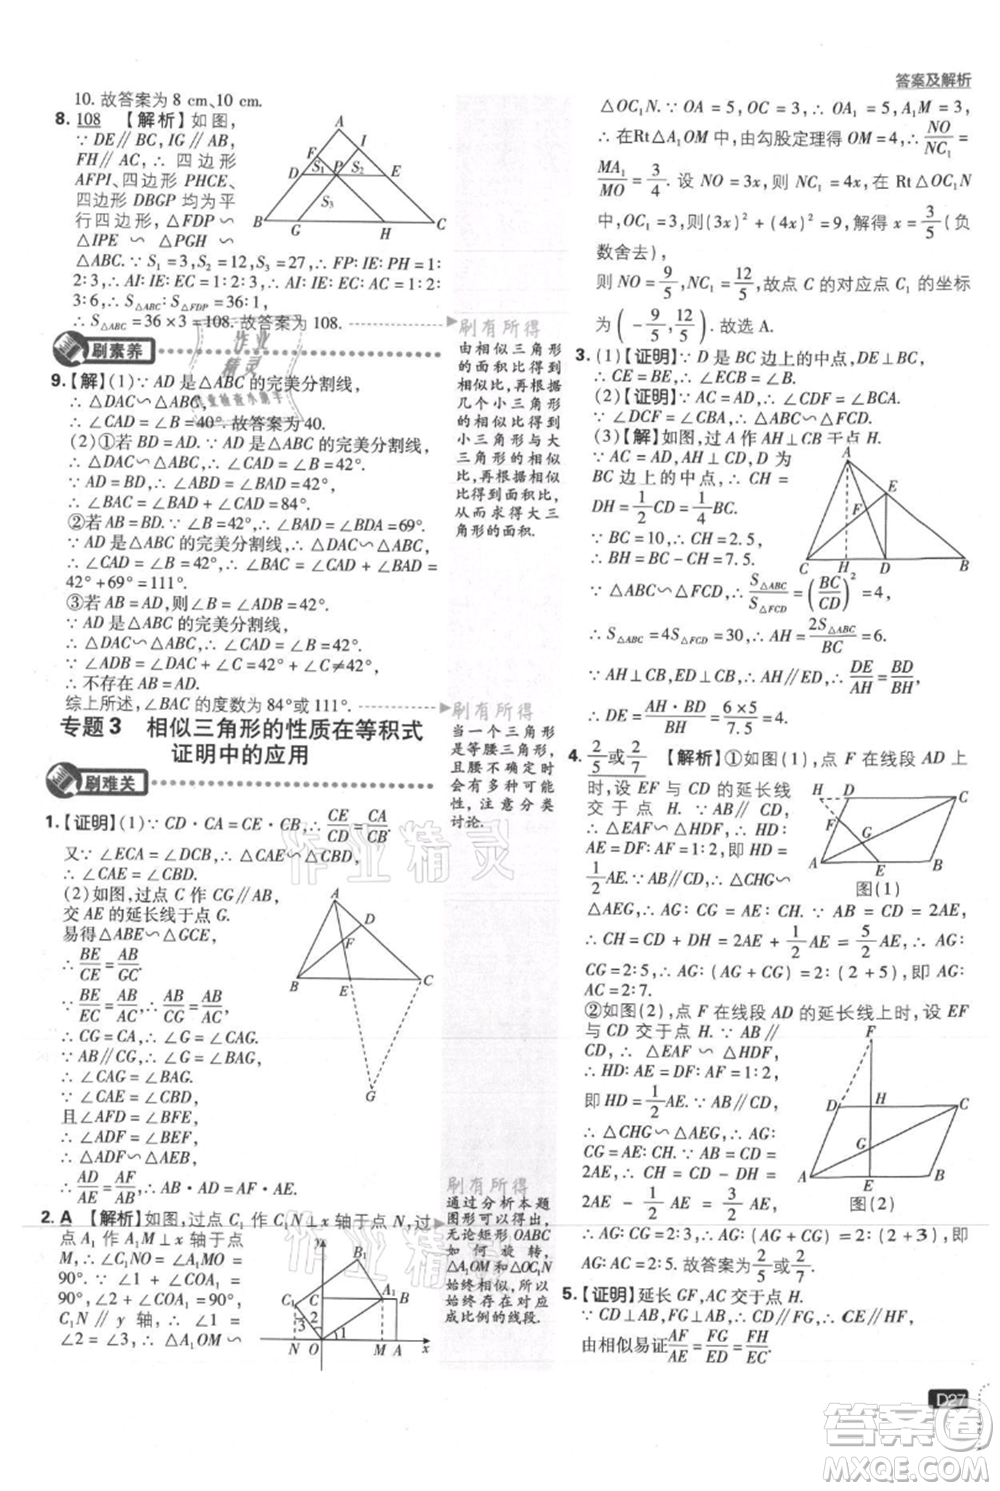 答案及解析
10. 故答案为 8 cm、10 cm.
8. 108 【解析】如图,
∵ DE∥BC, IG∥AB,
FH∥AC, ∴ 四边形
AFPI、四边形 PHCE、
四边形 DBGP 均为平
行四边形, △FDP∽
△IPE∽△PGH∽
△ABC. ∵ S₁=3, S₂=12, S₃=27, ∴ FP:IE:PH=1:
2:3, ∴ AI:IE:EC=1:2:3, ∴ AI:AC=1:
3:6, ∴ S△ABC:S△FDP=36:1,
∴ S△ABC=36×3=108. 故答案为 108.
刷素养
9.【解】(1)∵ AD 是△ABC 的完美分割线,
∴ △DAC∽△ABC,
∴ ∠CAD=∠B=40°. 故答案为 40.
(2)①若 BD=AD, ∵ AD 是△ABC 的完美分割线,
∴ △DAC∽△ABC, ∴ ∠CAD=∠B=42°.
∵ AD=BD, ∴ ∠BAD=∠B=42°,
∴ ∠BAC=∠BAD+∠CAD=84°.
②若 AB=BD. ∵ ∠B=42°, ∴ ∠BAD=∠BDA=69°.
∵ AD 是△ABC 的完美分割线, ∴ △DAC∽△ABC,
∴ ∠CAD=∠B=42°, ∴ ∠BAC=∠BAD+∠CAD=
42°+69°=111°.
③若 AB=AD, 则∠B=∠ADB=42°.
∵ AD 是△ABC 的完美分割线,
∴ △DAC∽△ABC, ∴ ∠CAD=∠B=42°.
∵ ∠ADB=∠DAC+∠C=42°, ∴ ∠C≠42°,
∴ 不存在 AB=AD.
综上所述, ∠BAC 的度数为 84°或 111°.
专题3 相似三角形的性质在等积式
证明中的应用
刷难关
1.【证明】(1)∵ CD·CA=CE·CB, ∴ CE/CD=CA/CB.
又∵ ∠ECA=∠DCB, ∴ △CAE∽△CBD,
∴ ∠CAE=∠CBD.
(2)如图, 过点 C 作 CG∥AB,
交 AE 的延长线于点 G.
易得△ABE∽△GCE,
∴ BE/CE=AB/GC.
∵ BE/EC=AB/AC, ∴ AB/GC=AB/AC,
∴ CG=CA, ∴ ∠G=∠CAG.
∵ AB∥CG, ∴ ∠G=∠BAG,
∴ ∠CAG=∠BAG.
∵ ∠CAE=∠CBD,
且∠AFD=∠BFE,
∴ ∠ADF=∠BEF,
∴ △ADF∽△AEB,
∴ AD/AE=AF/AB, ∴ AD·AB=AF·AE.
2. A 【解析】如图, 过点 C₁ 作 C₁N⊥x 轴于点 N, 过
点 A₁ 作 A₁M⊥x 轴于点 M.
90°. ∵ ∠2+∠COA₁=90°,
C₁N∥y 轴, ∴ ∠1=
∠2=∠3, ∴ △A₁OM∽
刷有所得
由相似三角形
的面积比得到
相似比,再根据
几个小三角形
的相似比得到
小三角形与大
三角形的相似
比,再根据相似
比得到面积比,
从而求得大三
角形的面积.
刷有所得
当一个三角形
是等腰三角形,
腰不确定时,会
有多种可能
性,注意分类
讨论.
刷有所得
通过分析本题
图形可以得出,
无论矩形OABC
如何旋转,
△A₁OM与△OC₁N
始终相似,所以
始终存在对应
成比例的线段.
△OC₁N. ∵ OA=5, OC=3, ∴ OA₁=5, A₁M=3,
∴ 在 Rt△A₁OM 中, 由勾股定理得 OM=4, ∴ NO/NC₁=
MA₁/MO=3/4. 设 NO=3x, 则 NC₁=4x, 在 Rt△OC₁N
中, OC₁=3, 则(3x)²+(4x)²=9, 解得 x=3/5(负
数舍去),
则 NO=9/5, NC₁=12/5, 故点 C 的对应点 C₁ 的坐标
为(-9/5, 12/5). 故选 A.
3. (1)【证明】∵ D 是 BC 上的中点, DE⊥BC,
∴ EB=EC, ∴ ∠ECB=∠B.
(2)【证明】∵ AD=AC, ∴ ∠CDF=∠BCA.
∵ ∠DCF=∠CBA, ∴ △ABC∽△FCD.
(3)【解】如图, 过 A 作 AH⊥CB 于点 H.
∵ AC=AD, AH⊥CD, D 是
BC 边上的中点, ∴ CH=
DH=1/2CD=1/4BC.
∵ BC=10, ∴ CH=2.5,
∴ BH=BC-CH=7.5.
∵ △ABC∽△FCD, ∴ S△ABC/S△FCD=(BC/CD)²=4,
∴ S△ABC=4S△FCD=30, ∴ AH=2S△ABC/BC=6.
∵ AH⊥CB, ED⊥CB, ∴ AH∥DE, ∴ DE/AH=BD/BH,
∴ DE=AH·BD/BH=6×5/7.5=4.
4. 2/5或2/7 【解析】①如图(1), 点 F 在线段 AD
上时, 设 EF 与 CD 的延长线
交于点 H. ∵ AB∥CD,
∴ △EAF∽△HDF,
∴ HD:AE=DF:AF=1:2,
即 HD=1/2AE. ∵ AB∥CD,
∴ △CHG∽△AEG, ∴ AG:CG=AE:CH.
∵ AB=CD=2AE,
∴ CH=CD+DH=2AE+1/2AE=5/2AE, ∴ AG:
CG=2:5, ∴ AG:(AG+CG)=2:(2+5), 即
AG:AC=2:7.
②如图(2), 点 F 在线段 AD 的延长线上时, 设 EF
与 CD 交于点 H. ∵ AB∥CD,
∴ △EAF∽△HDF,
∴ HD:AE=DF:AF=1:2,
即 HD=1/2AE. ∵ AB∥CD,
∴ △CHG∽△AEG,
∴ AG:CG=AE:CH.
∵ AB=CD=2AE, ∴ CH=CD-DH=
2AE-1/2AE=3/2AE, ∴ AG:CG=2:3,
∴ AG:(AG+CG)=2:(2+3), 即
AG:AC=2:5. 故答案为2/5或2/7.
5.【证明】延长 GF, AC 交于点 H.
∵ CD⊥AB, FG⊥AB, ∴ CD∥HF,
由相似易证AF/AE=FG/ED=FH/EC.
图(1)
图(2)
D27
答案圈
MXQE.COM
作业精灵